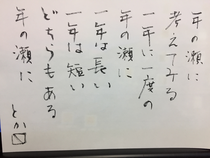 年の瀬に
考えてみる
一年に一度の
年の瀬に
一年は長い
一年は短い
どちらもある
年の瀬に
とか